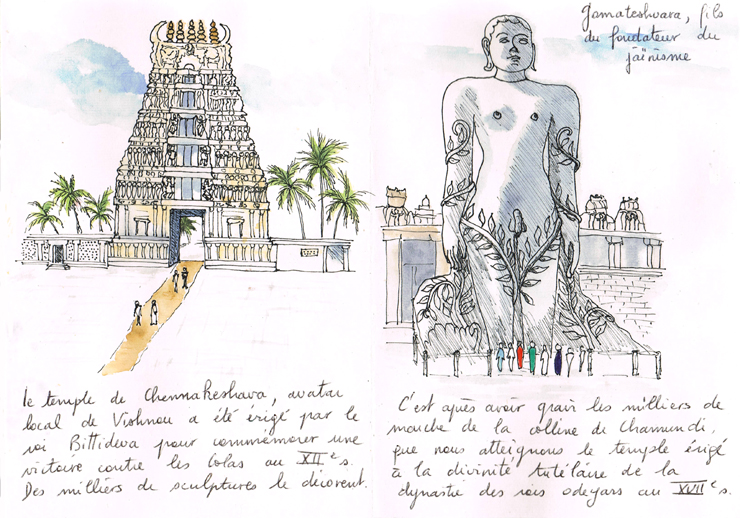 le temple de Chennakeshava, avatar
local de Vishnou a été érigé par le
roi Bittideva pour commémorer une
victoire contre les Colas au XIIe s.
Des milliers de sculptures le décorent.
Gomateshvara, fils
du fondateur du
jaïnisme
C'est après avoir gravi les milliers de
marche de la colline de Chamundi,
que nous atteignons le temple érigé
à la divinité tutélaire de la
dynastie des rois odeyars au XVIIe s.